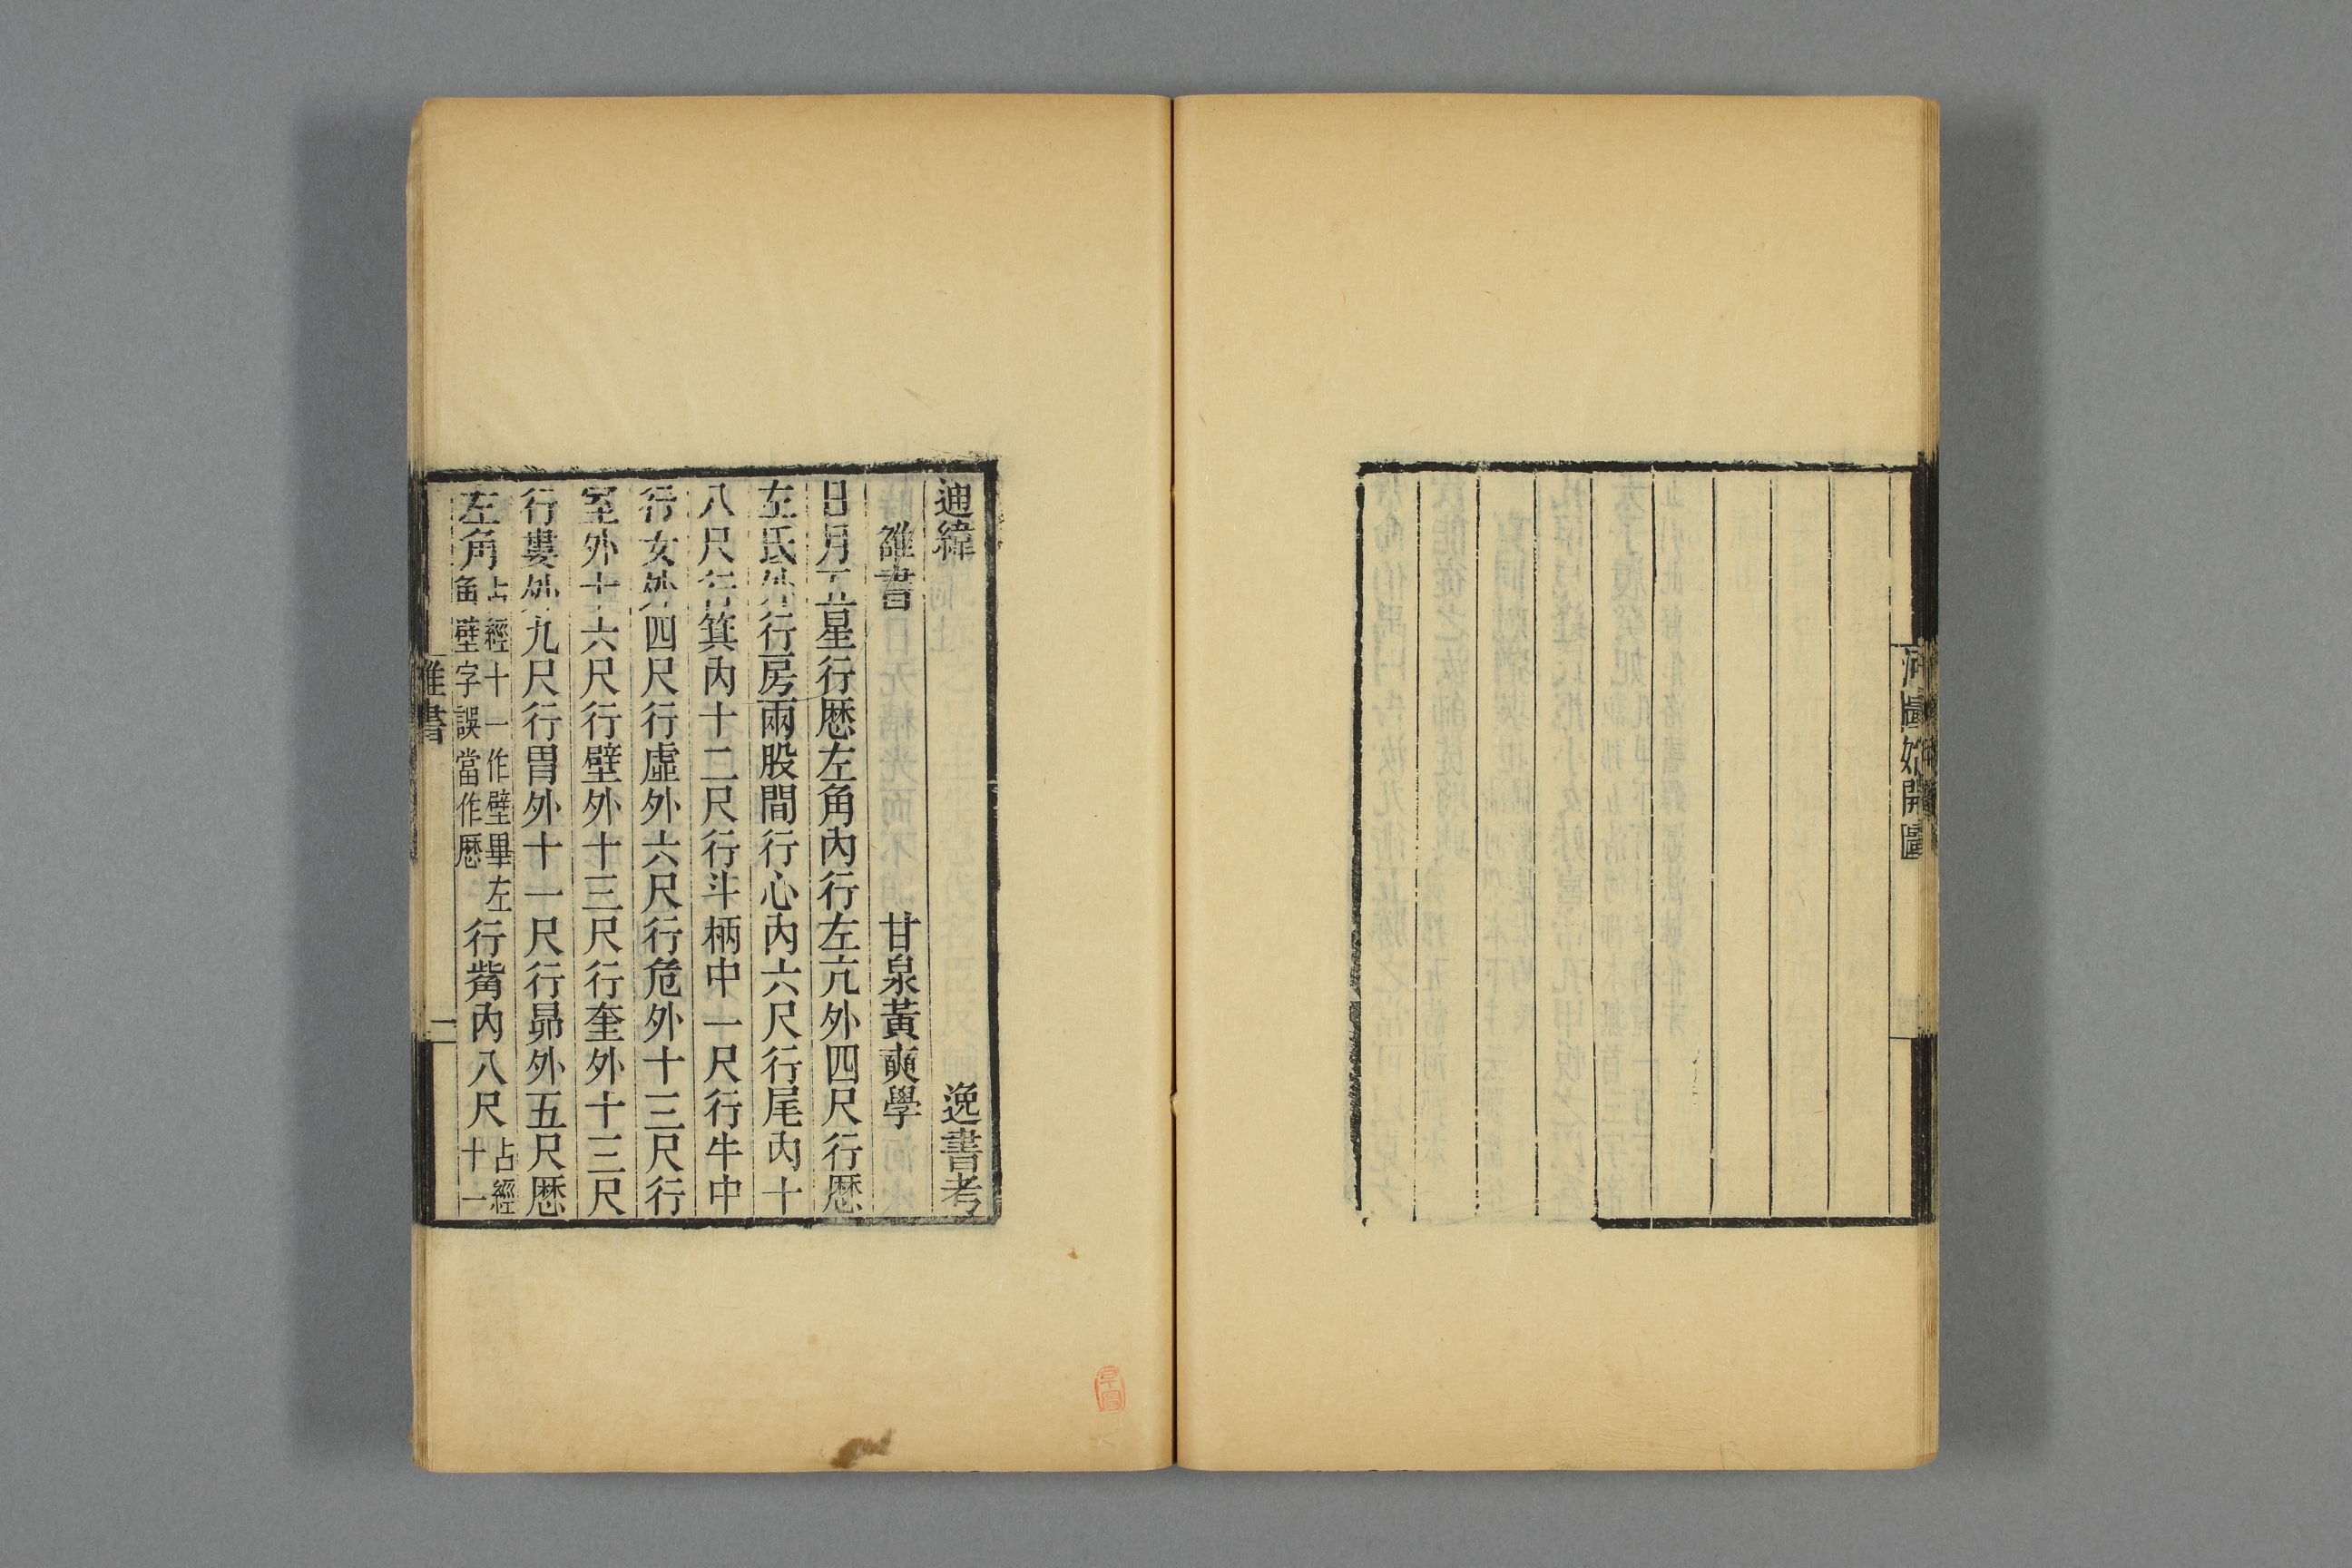 河圖始開圖
通緯 逸書考
雒書 甘泉黃奭學
日月五星行歷左角內行左亢外四尺行歷
左氐外行房兩股間行心內六尺行尾內十
八尺行箕內十二尺行斗柄中一尺行牛中
行女外四尺行虛外六尺行危外十三尺行
室外十六尺行壁外十三尺行奎外十三尺
行婁外九尺行胃外十一尺行昴外五尺歷
左角占經十一作壁畢左角壁字誤當作歷行觜內八尺占經十一
雒書
一